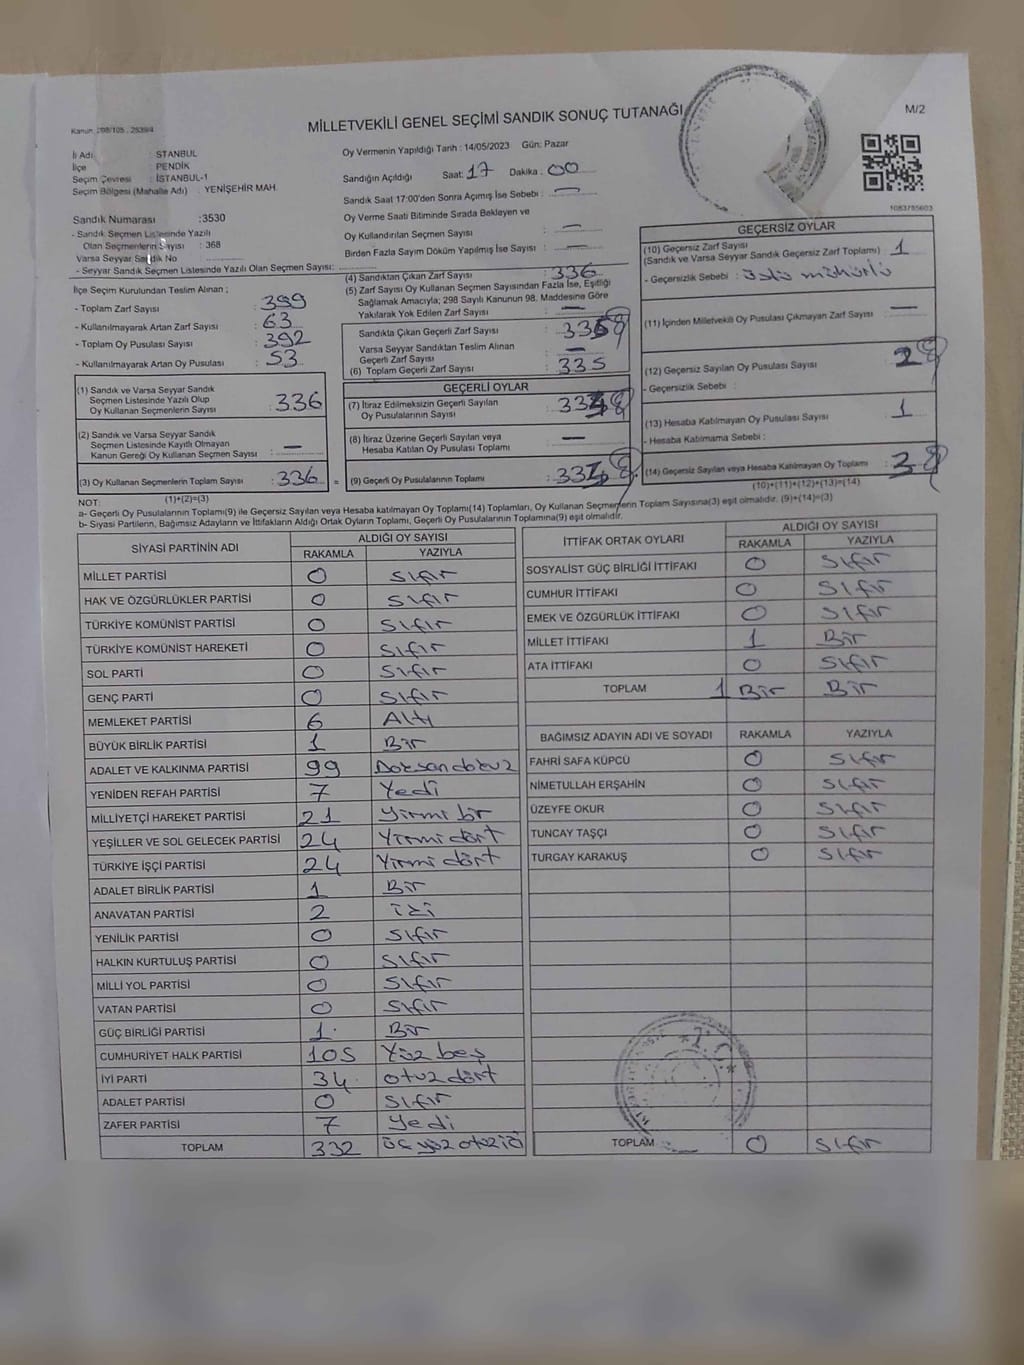 Kanun: 298/105, 2839/4
MİLLETVEKİLİ GENEL SEÇİMİ SANDIK SONUÇ TUTANAĞI
M/2
İl Adı : STANBUL
İlçe : PENDİK
Seçim Çevresi : İSTANBUL-1
Seçim Bölgesi (Mahalle Adı) : YENİŞEHİR MAH.
Sandık Numarası :3530
- Sandık Seçmen Listesinde Yazılı
Olan Seçmenlerin Sayısı : 368
Varsa Seyyar Sandık No :
- Seyyar Sandık Seçmen Listesinde Yazılı Olan Seçmen Sayısı:
İlçe Seçim Kurulundan Teslim Alınan ;
- Toplam Zarf Sayısı : 399
- Kullanılmayarak Artan Zarf Sayısı : 63
- Toplam Oy Pusulası Sayısı : 392
- Kullanılmayarak Artan Oy Pusulası : 53
(1) Sandık ve Varsa Seyyar Sandık
Seçmen Listesinde Yazılı Olup
Oy Kullanan Seçmenlerin Sayısı : 336
(2) Sandık ve Varsa Seyyar Sandık
Seçmen Listesinde Kayıtlı Olmayan
Kanun Gereği Oy Kullanan Seçmen Sayısı : —
(3) Oy Kullanan Seçmenlerin Toplam Sayısı : 336 =
(1)+(2)=(3)
Oy Vermenin Yapıldığı Tarih : 14/05/2023 Gün: Pazar
Sandığın Açıldığı Saat: 17 Dakika : 00
Sandık Saat 17:00'den Sonra Açımış İse Sebebi : —
Oy Verme Saati Bitiminde Sırada Bekleyen ve
Oy Kullandırılan Seçmen Sayısı : —
Birden Fazla Sayım Döküm Yapılmış İse Sayısı : —
(4) Sandıktan Çıkan Zarf Sayısı : 336
(5) Zarf Sayısı Oy Kullanan Seçmen Sayısından Fazla İse, Eşitliği
Sağlamak Amacıyla; 298 Sayılı Kanunun 98. Maddesine Göre
Yakılarak Yok Edilen Zarf Sayısı : —
Sandıkta Çıkan Geçerli Zarf Sayısı :
Varsa Seyyar Sandıktan Teslim Alınan
Geçerli Zarf Sayısı : —
(6) Toplam Geçerli Zarf Sayısı : 335
GEÇERLİ OYLAR
(7) İtiraz Edilmeksizin Geçerli Sayılan
Oy Pusulalarının Sayısı :
(8) İtiraz Üzerine Geçerli Sayılan veya
Hesaba Katılan Oy Pusulası Toplamı : —
(9) Geçerli Oy Pusulalarının Toplamı :
1083785603
GEÇERSİZ OYLAR
(10) Geçersiz Zarf Sayısı
(Sandık ve Varsa Seyyar Sandık Geçersiz Zarf Toplamı) : 1
- Geçersizlik Sebebi :
(11) İçinden Milletvekili Oy Pusulası Çıkmayan Zarf Sayısı : —
(12) Geçersiz Sayılan Oy Pusulası Sayısı : 2
- Geçersizlik Sebebi :
(13) Hesaba Katılmayan Oy Pusulası Sayısı : 1
- Hesaba Katılmama Sebebi :
(14) Geçersiz Sayılan veya Hesaba Katılmayan Oy Toplamı : 3
(10)+(11)+(12)+(13)=(14)
NOT:
a- Geçerli Oy Pusulalarının Toplamı(9) ile Geçersiz Sayılan veya Hesaba katılmayan Oy Toplamı(14) Toplamları, Oy Kullanan Seçmenlerin Toplam Sayısına(3) eşit olmalıdır. (9)+(14)=(3)
b- Siyasi Partilerin, Bağımsız Adayların ve İttifakların Aldığı Ortak Oyların Toplamı, Geçerli Oy Pusulalarının Toplamına(9) eşit olmalıdır.
SİYASİ PARTİNİN ADI ALDIĞI OY SAYISI
RAKAMLA YAZIYLA
MİLLET PARTİSİ 0 Sıfır
HAK VE ÖZGÜRLÜKLER PARTİSİ 0 Sıfır
TÜRKİYE KOMÜNİST PARTİSİ 0 Sıfır
TÜRKİYE KOMÜNİST HAREKETİ 0 Sıfır
SOL PARTİ 0 Sıfır
GENÇ PARTİ 0 Sıfır
MEMLEKET PARTİSİ 6 Altı
BÜYÜK BİRLİK PARTİSİ 1 Bir
ADALET VE KALKINMA PARTİSİ 99 Doksandokuz
YENİDEN REFAH PARTİSİ 7 Yedi
MİLLİYETÇİ HAREKET PARTİSİ 21 Yirmi bir
YEŞİLLER VE SOL GELECEK PARTİSİ 24 Yirmi dört
TÜRKİYE İŞÇİ PARTİSİ 24 Yirmi dört
ADALET BİRLİK PARTİSİ 1 Bir
ANAVATAN PARTİSİ 2 iki
YENİLİK PARTİSİ 0 Sıfır
HALKIN KURTULUŞ PARTİSİ 0 Sıfır
MİLLİ YOL PARTİSİ 0 Sıfır
VATAN PARTİSİ 0 Sıfır
GÜÇ BİRLİĞİ PARTİSİ 1 Bir
CUMHURİYET HALK PARTİSİ 105 Yüz beş
İYİ PARTİ 34 otuz dört
ADALET PARTİSİ 0 Sıfır
ZAFER PARTİSİ 7 Yedi
TOPLAM 332
İTTİFAK ORTAK OYLARI ALDIĞI OY SAYISI
RAKAMLA YAZIYLA
SOSYALİST GÜÇ BİRLİĞİ İTTİFAKI 0 Sıfır
CUMHUR İTTİFAKI 0 Sıfır
EMEK VE ÖZGÜRLÜK İTTİFAKI 0 Sıfır
MİLLET İTTİFAKI 1 Bir
ATA İTTİFAKI 0 Sıfır
TOPLAM 1 Bir Bir
BAĞIMSIZ ADAYIN ADI VE SOYADI RAKAMLA YAZIYLA
FAHRİ SAFA KÜPCÜ 0 Sıfır
NİMETULLAH ERŞAHİN 0 Sıfır
ÜZEYFE OKUR 0 Sıfır
TUNCAY TAŞÇI 0 Sıfır
TURGAY KARAKUŞ 0 Sıfır
TOPLAM 0 Sıfır